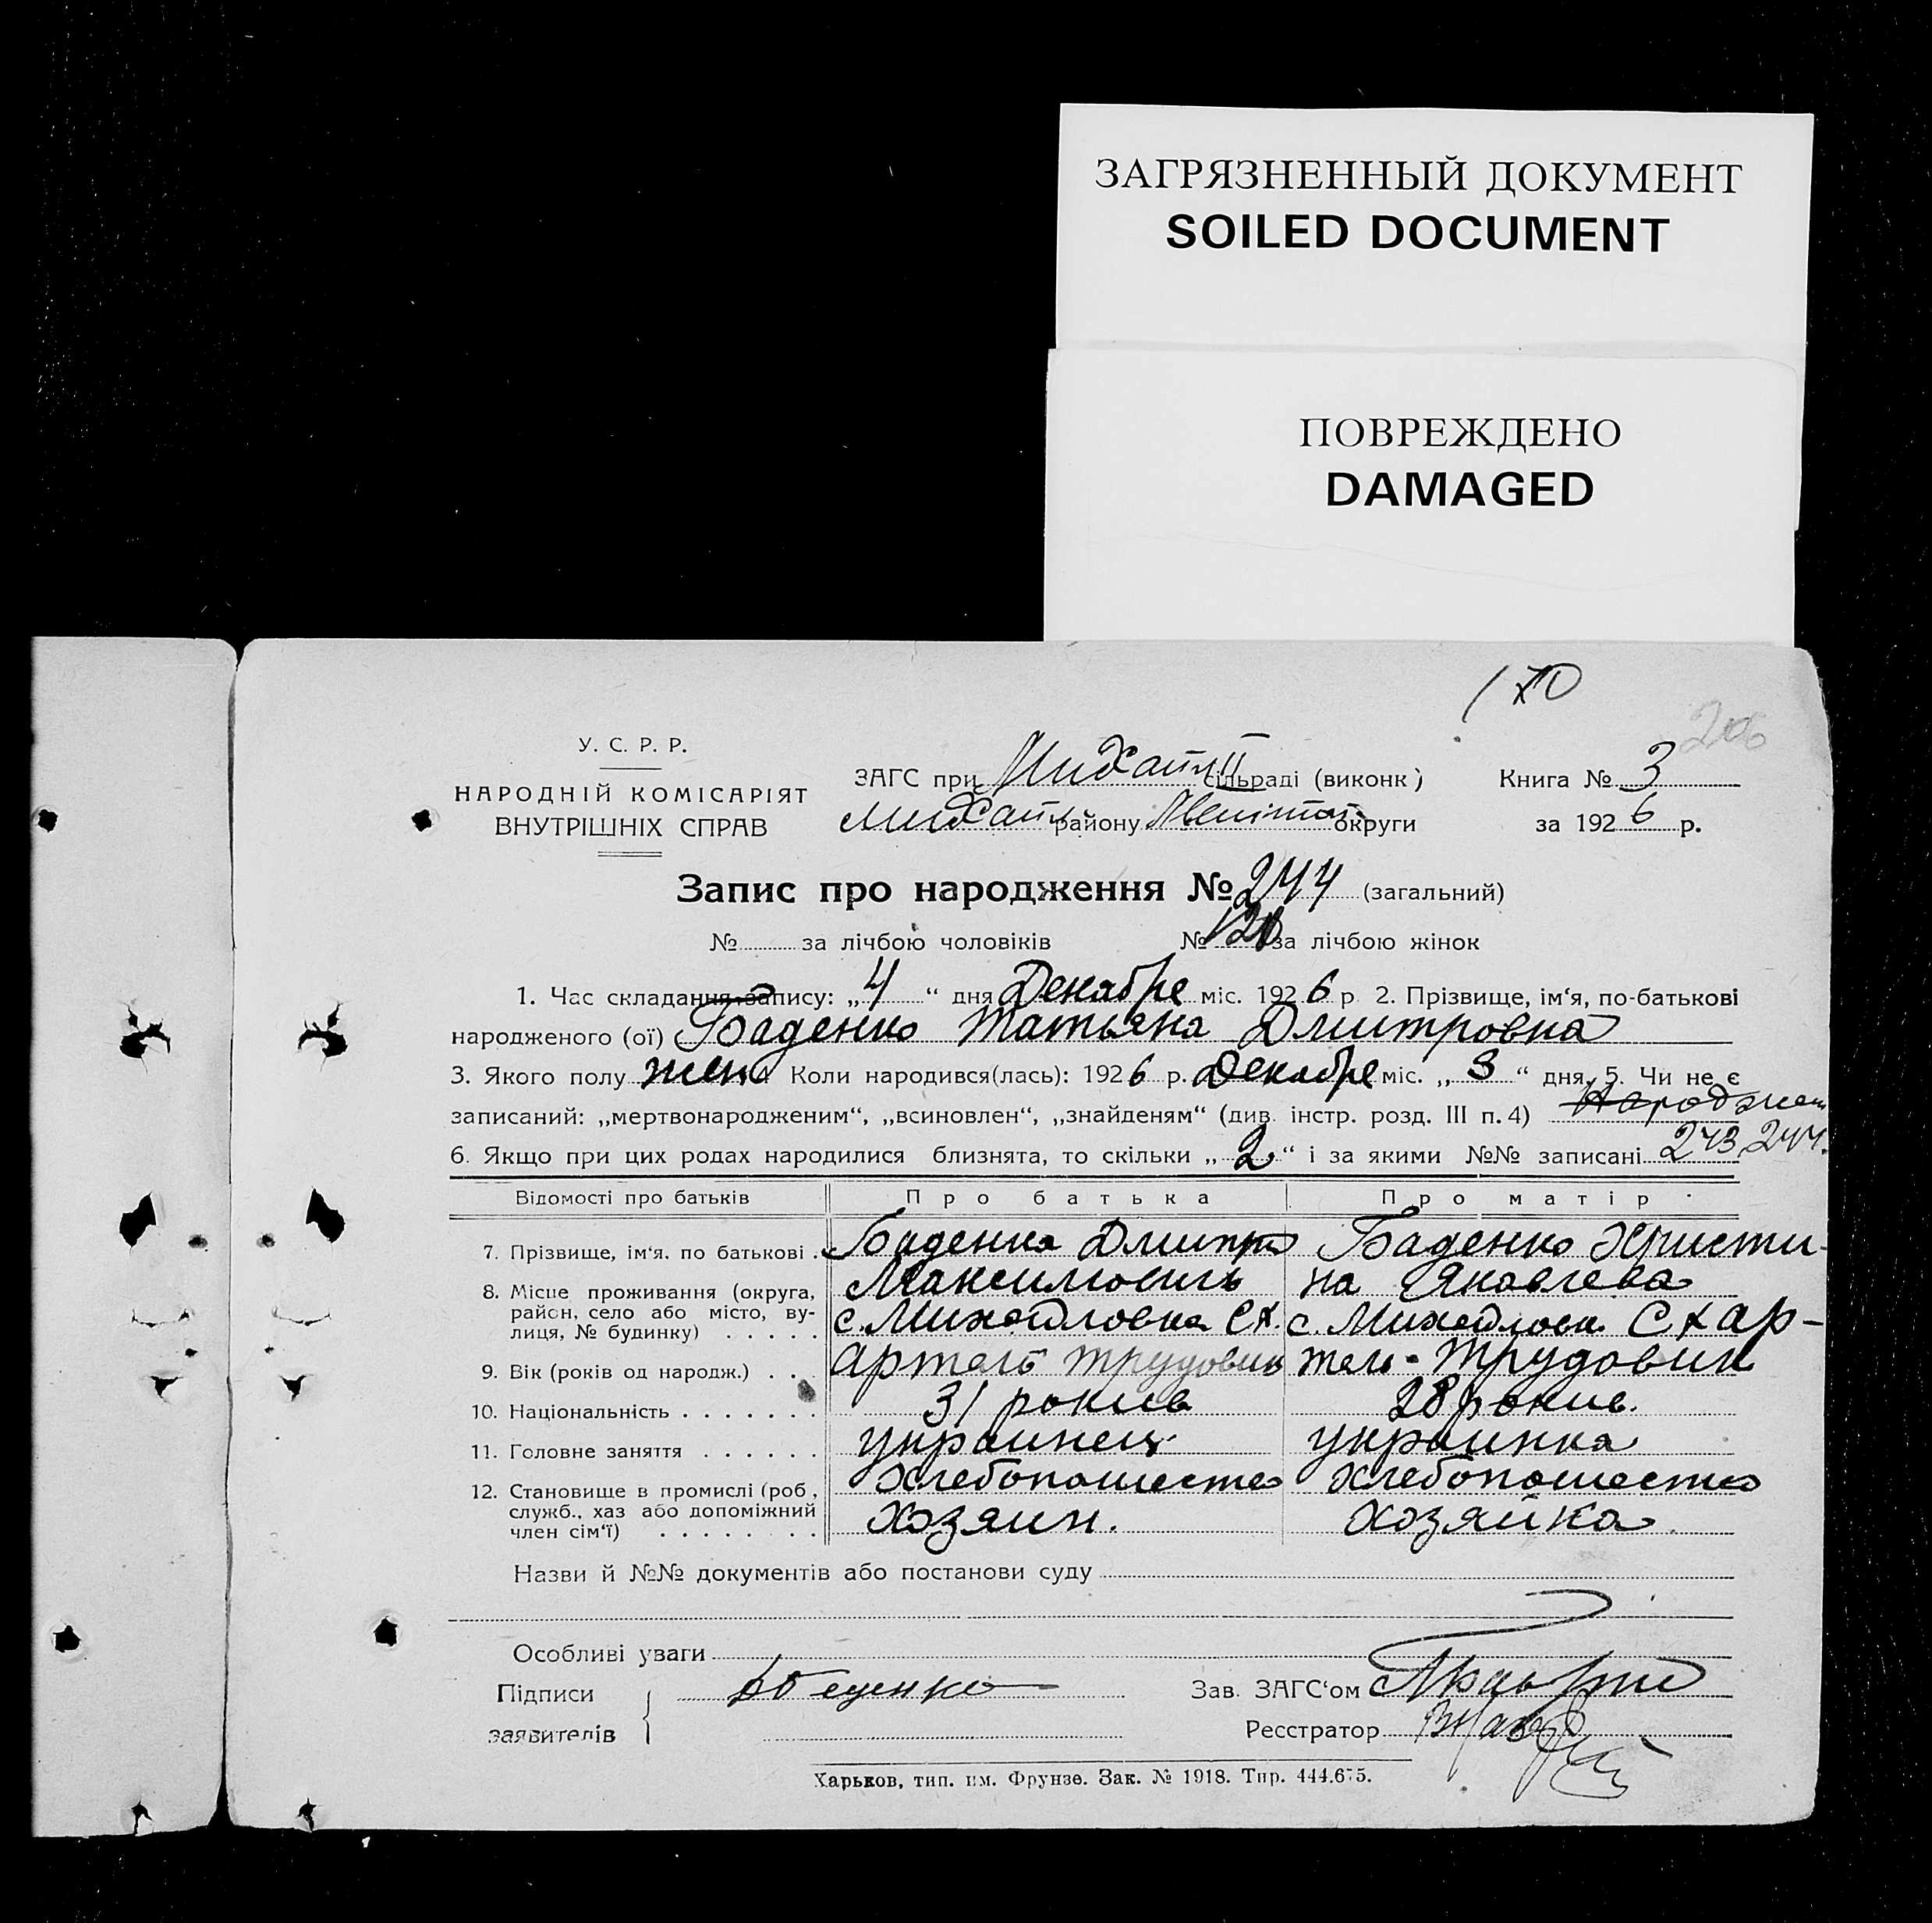 ЗАГРЯЗНЕННЫЙ ДОКУМЕНТ
SOILED DOCUMENT
ПОВРЕЖДЕНО
DAMAGED
170
206
У. С. Р. Р.
НАРОДНІЙ КОМІСАРІЯТ
ВНУТРІШНІХ СПРАВ
ЗАГС при Михайл II сільраді (виконк)
Книга № 3
Михайл району округи
за 1926 р.
Запис про народження № 244 (загальний)
№ за лічбою чоловіків № 120 за лічбою жінок
1. Час складання запису: „4“ дня Декабре міс. 1926 р 2. Прізвище, ім‘я, по-батькові
народженого (ої) Баденко Татьяна Дмитровна
3. Якого полу жен. Коли народився(лась): 1926 р. Декабре міс. „3“ дня, 5. Чи не є
записаний: „мертвонародженим“, „всиновлен“, „знайденям“ (див. інстр. розд. III п. 4)
6. Якщо при цих родах народилися близнята, то скільки „2“ і за якими №№ записані 243, 244.
Відомості про батьків Про батька Про матір
7. Прізвище, ім‘я. по батькові Баденко Дмитр Баденко Христи-
Максимович на Яковлева
8. Місце проживання (округа,
район, село або місто, ву-
лиця, № будинку) с. Михайловка СХ. с. Михайловка СХ ар-
9. Вік (років од народж.) артель трудовик тель-Трудовик
10. Національність 31 рокив 28 рокив.
11. Головне заняття украинец украинка
12. Становище в промислі (роб,
служб., хаз або допоміжний
член сім‘ї) хлебопашество хлебопашество
хозяин. хозяйка
Назви й №№ документів або постанови суду
Особливі уваги
Підписи
заявителів
Зав. ЗАГС‘ом
Реєстратор
Харьков, тип. им. Фрунзе. Зак. № 1918. Тир. 444.675.